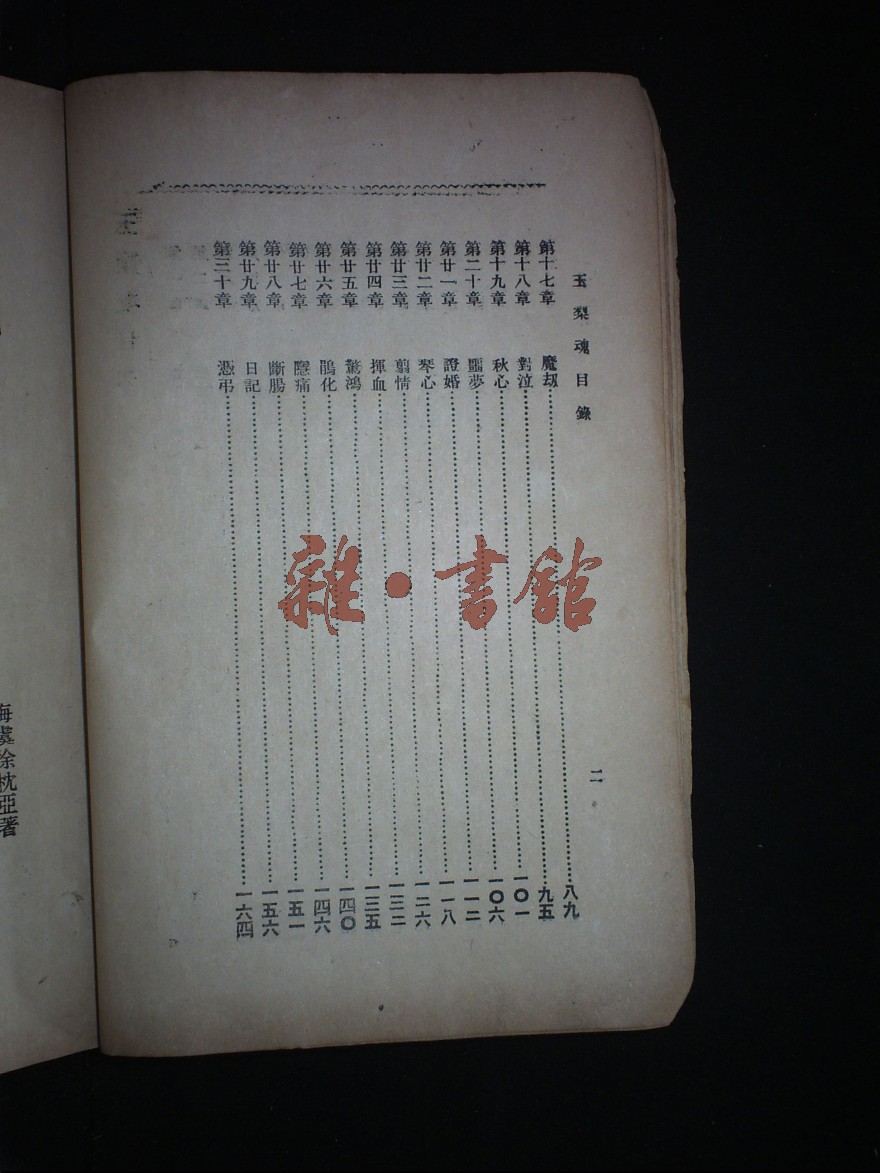 玉梨魂目錄
二
第十七章 魔刧 八九
第十八章 對泣 九五
第十九章 秋心 一〇一
第二十章 噩夢 一〇六
第廿一章 證婚 一一二
第廿二章 琴心 一一八
第廿三章 翦情 一二六
第廿四章 揮血 一三二
第廿五章 驚鴻 一三五
第廿六章 鵑化 一四〇
第廿七章 隱痛 一四六
第廿八章 斷腸 一五一
第廿九章 日記 一五六
第三十章 憑弔 一六四
雜・書館
海虞徐枕亞著